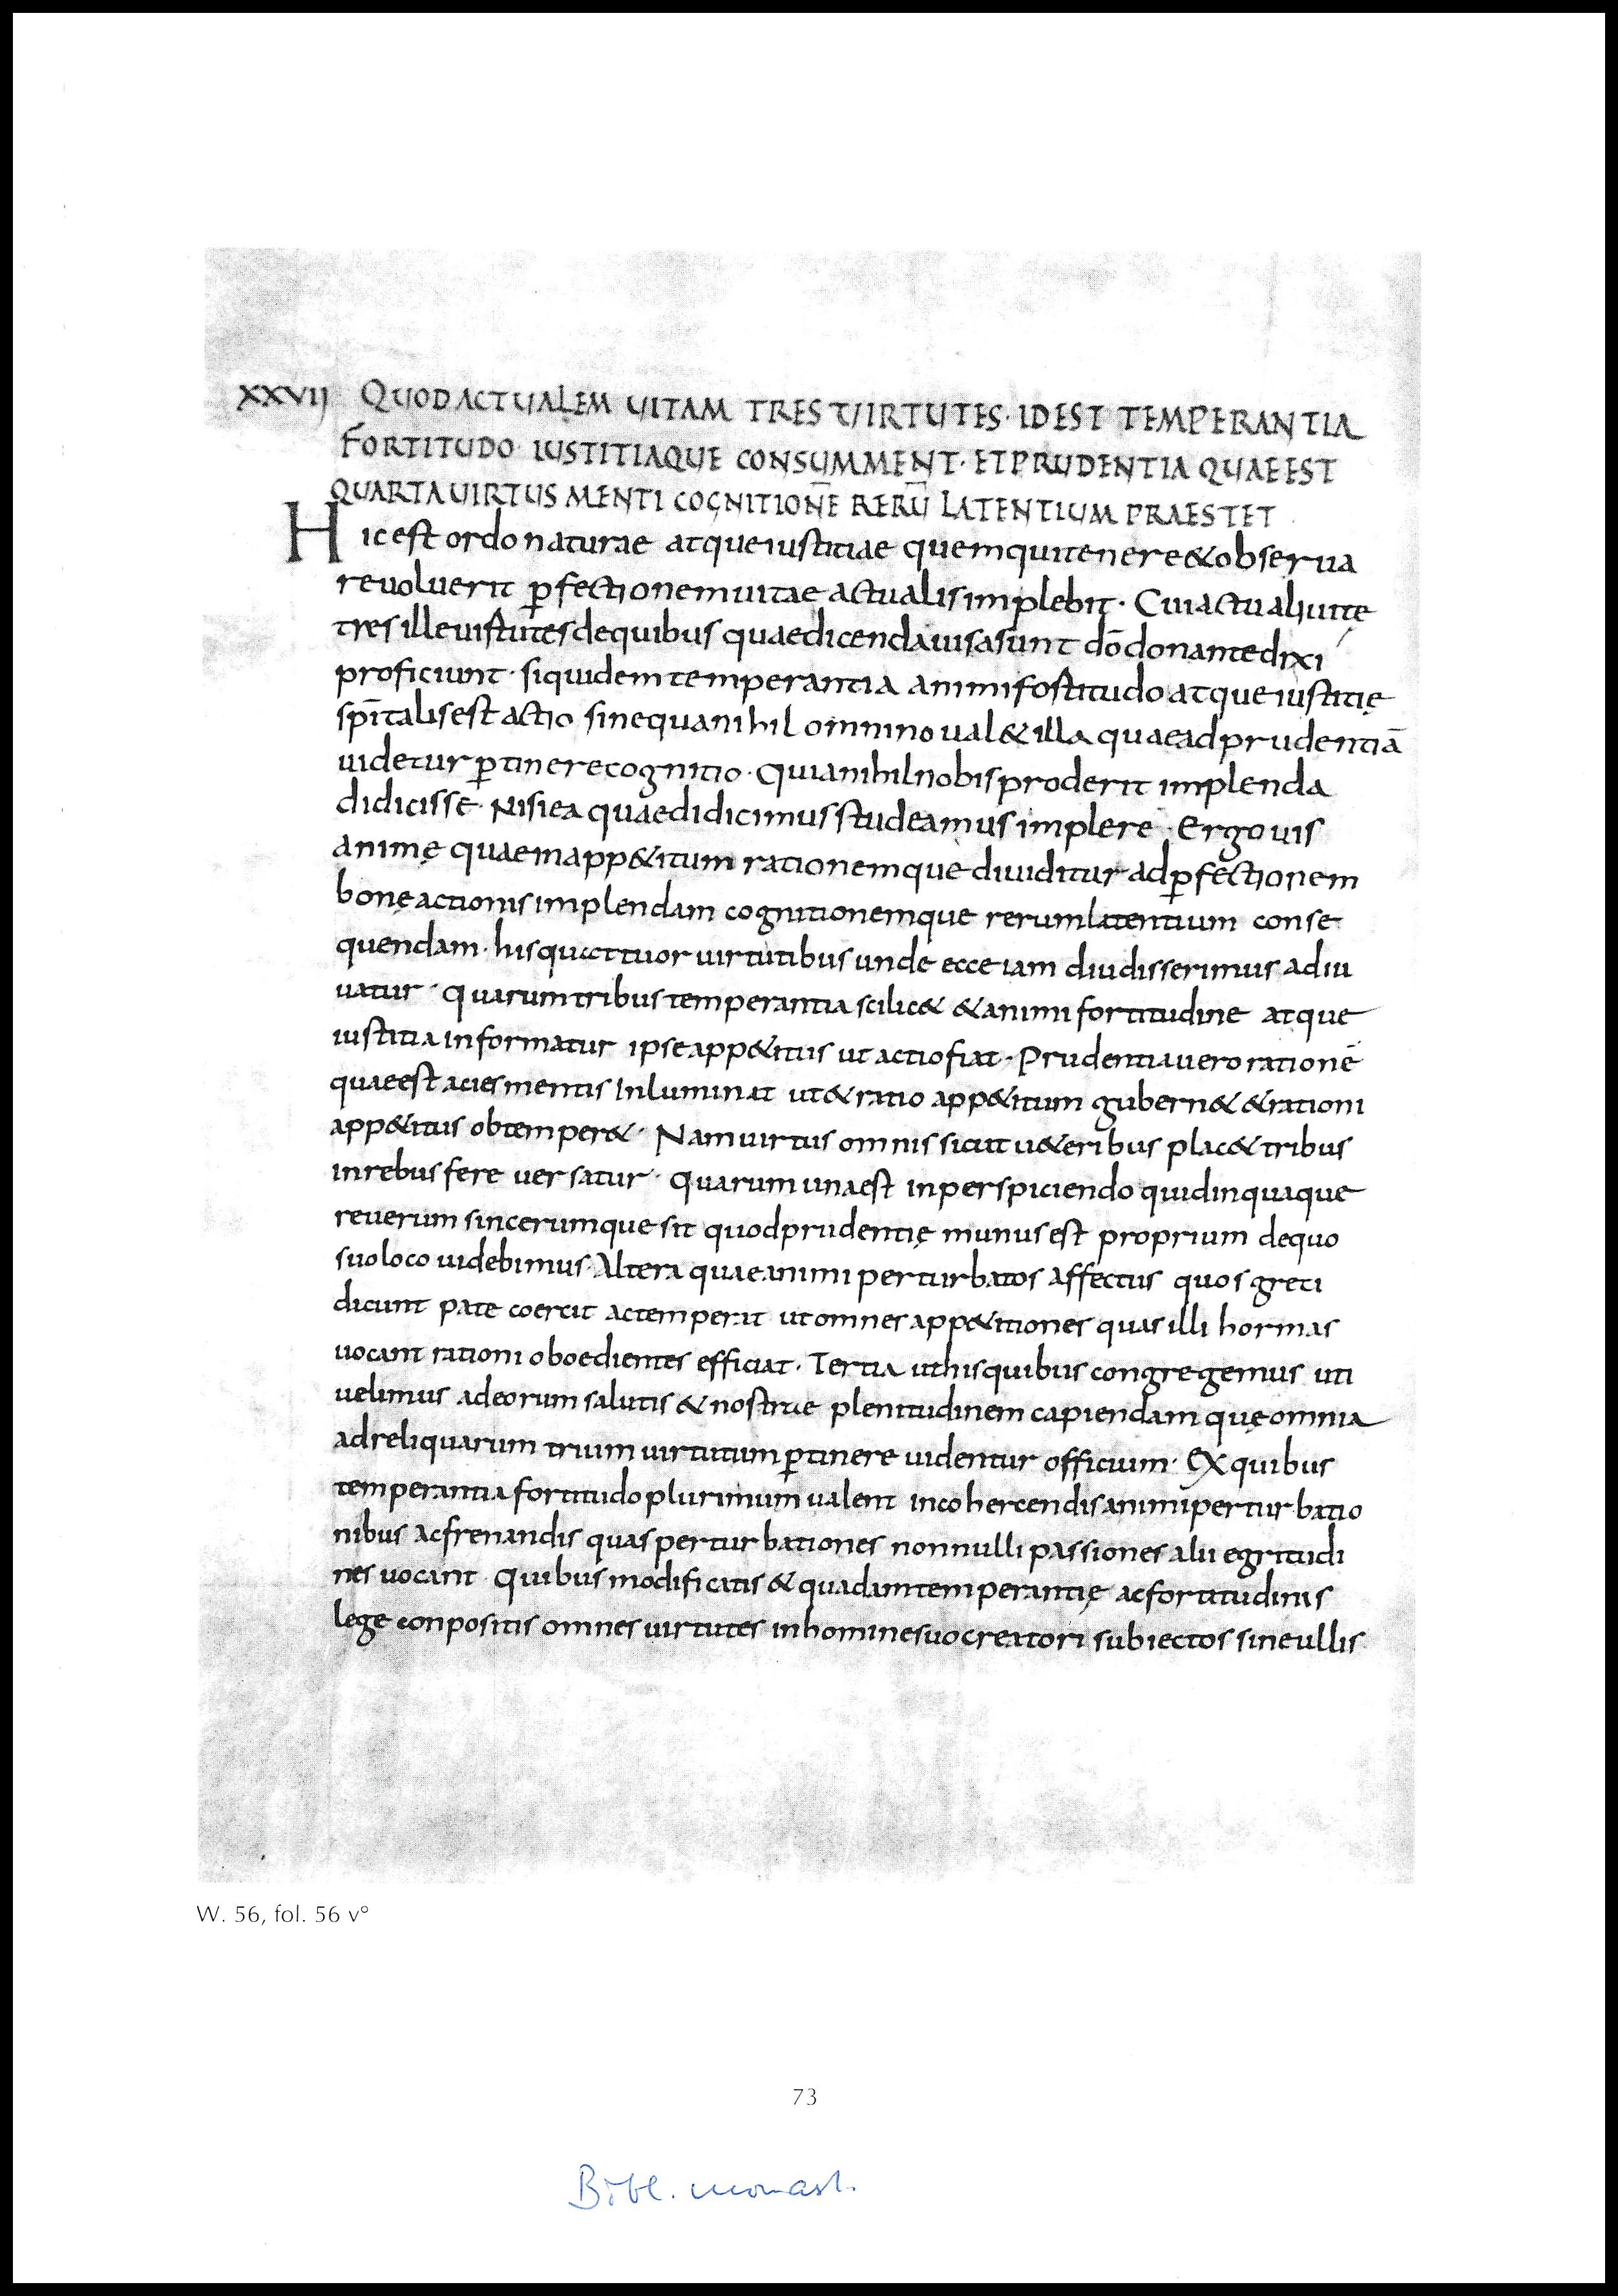 XXVIJ QUOD ACTUALEM UITAM TRES UIRTUTES· IDEST TEMPERANTIA
FORTITUDO· IUSTITIAQUE CONSUMMENT· ET PRUDENTIA QUAE EST
QUARTA UIRTUS MENTI COGNITIONE̅ RERU̅ LATENTIUM PRAESTET
Hic est ordo naturae atque iustitiae quem qui tenere & obserua
re voluerit ꝑfectionem uitae actualis implebit· Cui actuali uitę
tres ille uirtutes de quibus quae dicenda uisa sunt do̅ donante dixi
proficiunt· siquidem temperantia animi fortitudo atque iustitię
sp̅italis est actio sine qua nihil omnino ual& illa quae ad prudentia̅
uidetur ꝑtinere cognitio· Quia nihil nobis proderit implenda
didicisse· Nisi ea quae didicimus studeamus implere· Ergo uis
animę quae in app&itum rationemque diuiditur ad ꝑfectionem
bonę actionis implendam cognitionemque rerum latentium conse
quendam· his quattuor uirtutibus unde ecce iam diu disserimus adiu
uatur· Quarum tribus temperantia scilic& & animi fortitudine atque
iustitia informatur ipse app&itus ut actio fiat· Prudentia uero ratione̅
quae est acies mentis inluminat ut & ratio app&itum gubern& & rationi
app&itus obtemper&· Nam uirtus omnis sicut u&eribus plac& tribus
in rebus fere versatur· Quarum una est in perspiciendo quid in quaque
re uerum sincerumque sit quod prudentię munus est proprium de quo
suo loco uidebimus· Altera quae animi perturbatos affectus quos greti
dicunt pate coercit ac temperat ut omnes app&itiones quas illi hormas
uocant rationi oboedientes efficiat· Tertia ut his quibus congregemus uti
uelimus ad eorum salutis & nostrae plenitudinem capiendam quę omnia
ad reliquarum trium uirtutum ꝑtinere uidentur officium· Ex quibus
temperantia fortitudo plurimum ualent in cohercendis animi perturbatio
nibus ac frenandis quas perturbationes nonnulli passiones alii egritudi
nes uocant· Quibus modificatis & quadam temperantię ac fortitudinis
lege conpositis omnes uirtutes in homine suo creatori subiectos sine ullis
W. 56, fol. 56 v°
73
Bibl. monast.